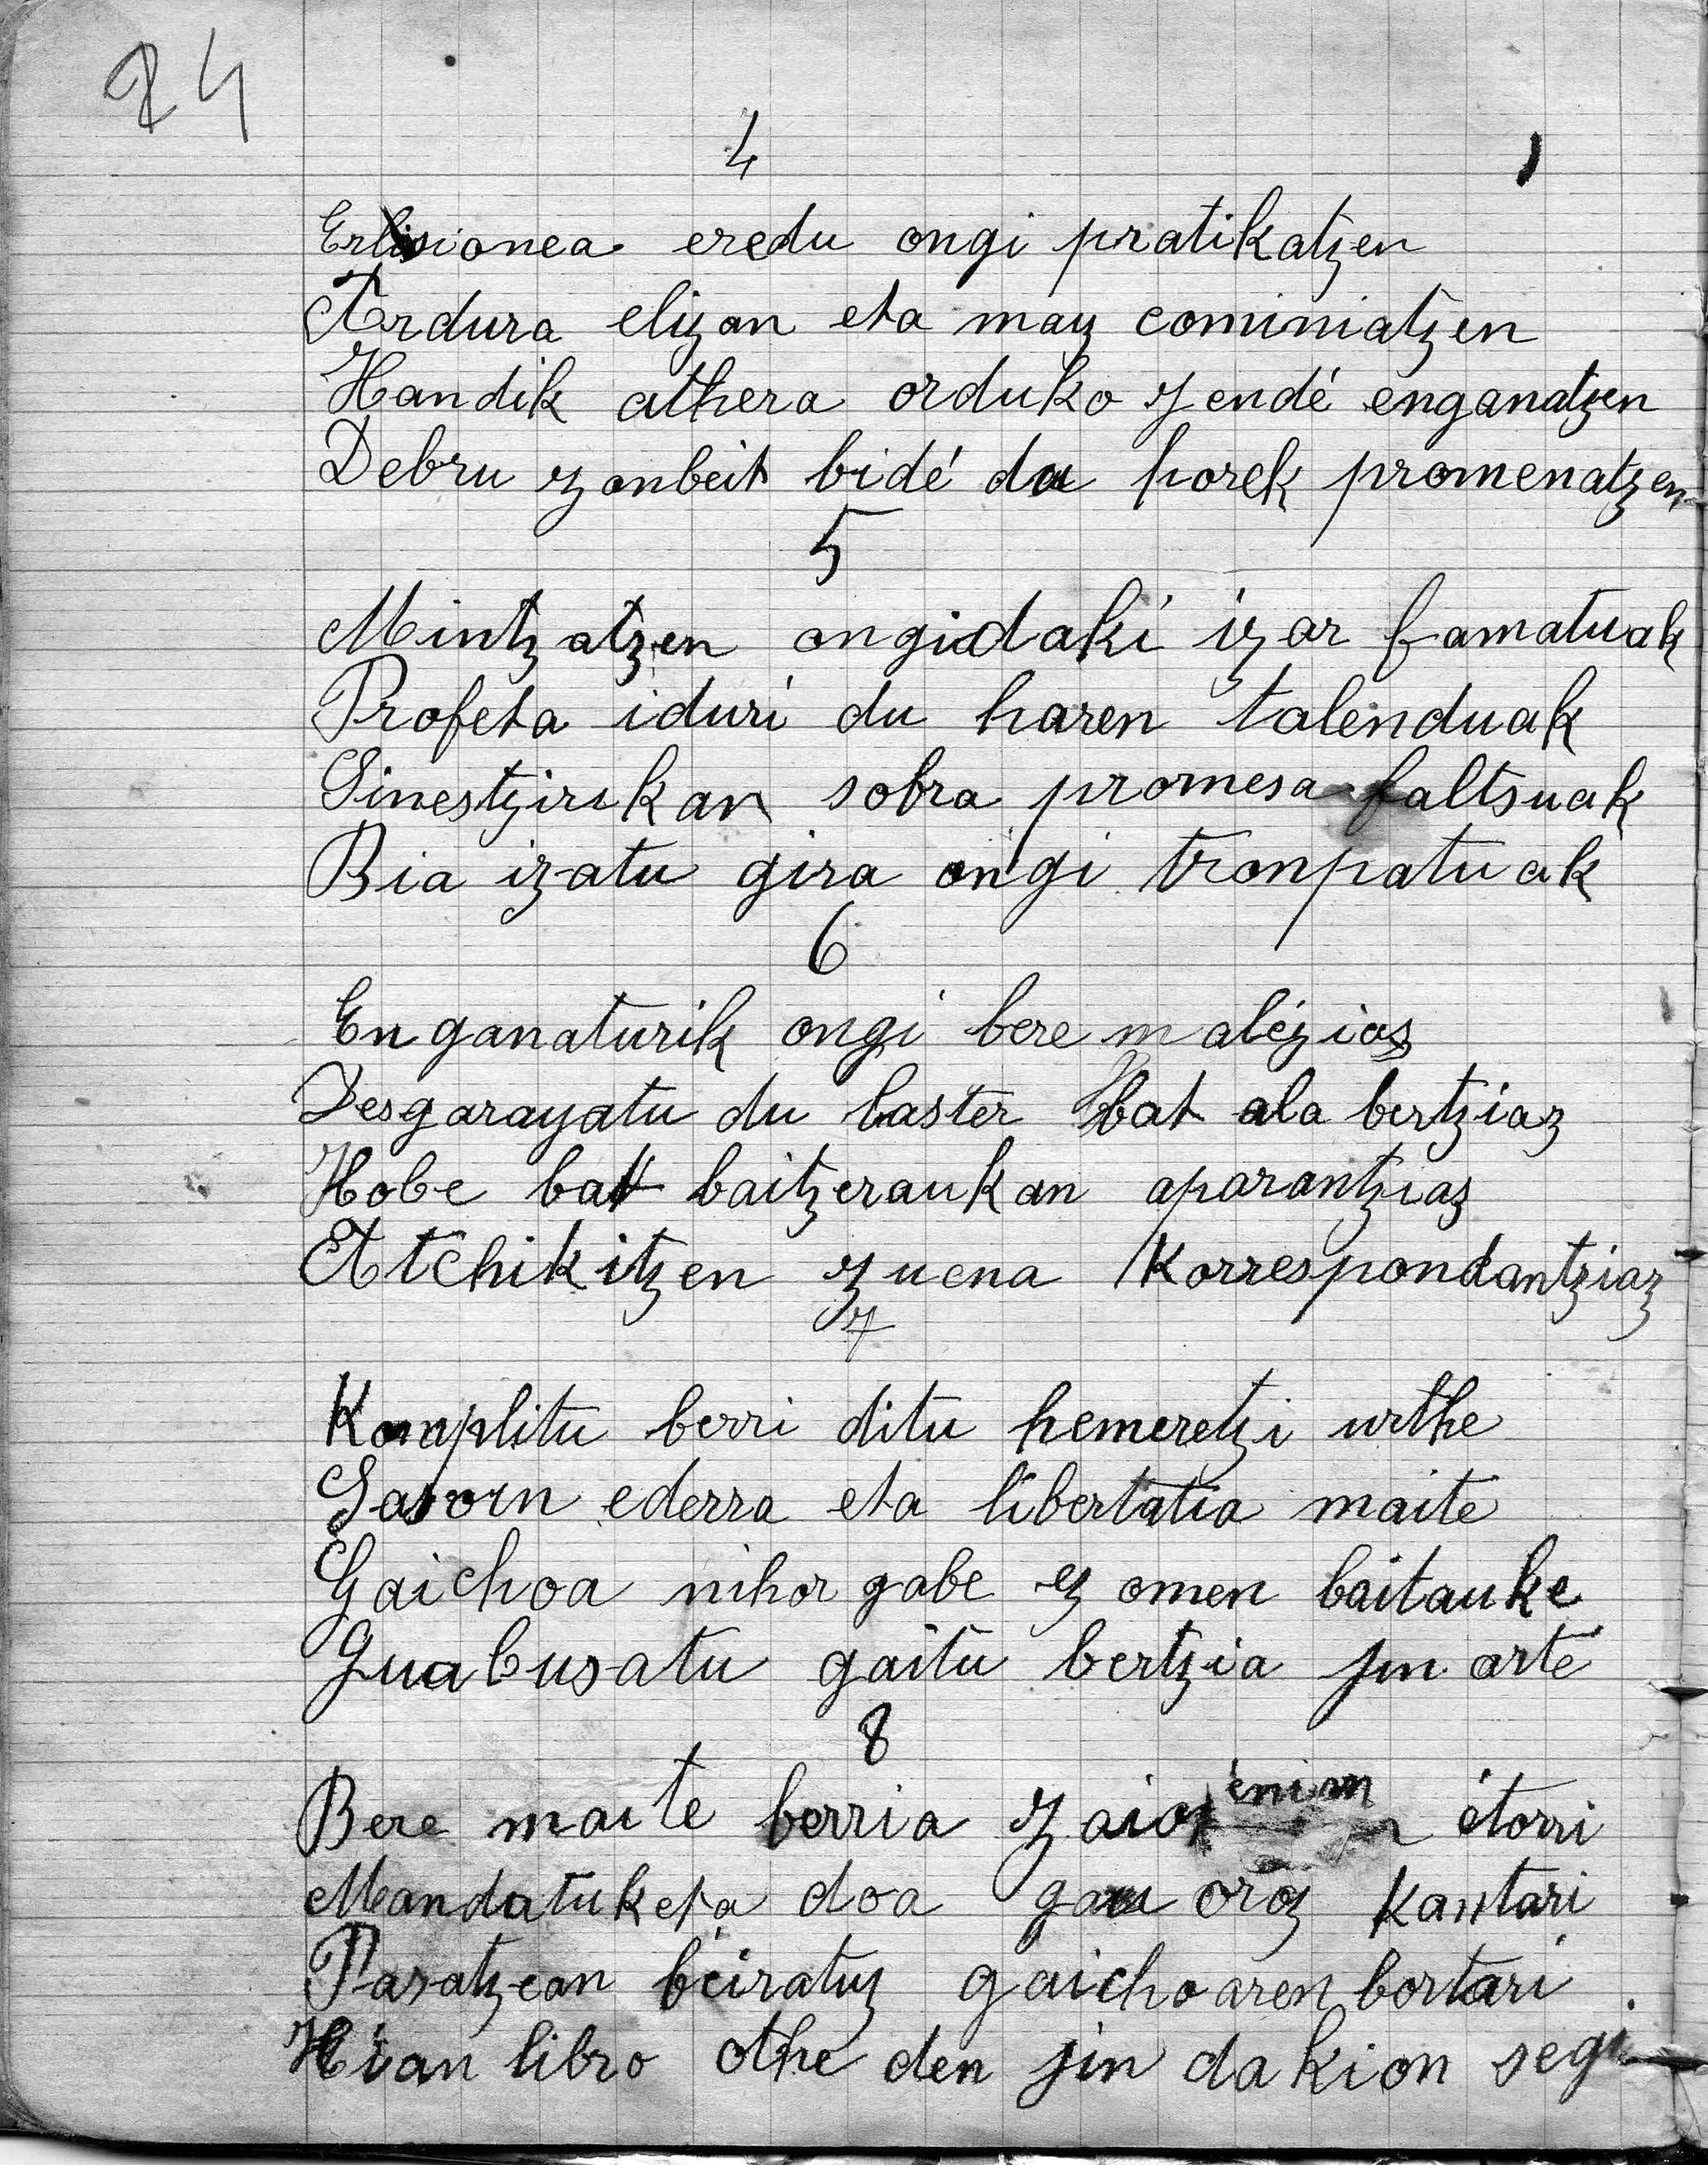 24
4
Erlisionea eredu ongi pratikatzen
Ardura elizan eta mayz cominiatzen
Handik athera orduko zendé enganatzen
Debru zonbeit bidé du horek promenatzen
5
Mintzatzen ongidaki izar famatuak
Profeta iduri du haren talenduak
Sinestzirikan sobra promesa faltsuak
Bia izatu gira ongi tronpatuak
6
Enganaturik ongi bere malézias
Desgarayatu du baster bat ala bertziaz
Hobe bat baitzeraukan aparantziaz
Atchikitzen zuena Korrespondantziaz
7
Konplitu berri ditu hemeretzi urthe
Sasoin ederra eta libertatia maite
Gaichoa nihor gabe ez omen baitauke
Gu abusatu gaitu bertzia jin arte
8
Bere maite berria zaio énim étorri
Mandatuketa doa gau oroz kantari
Pasatzean beiratuz gaichoaren bortari
Hian libro othe den jin dakion segi